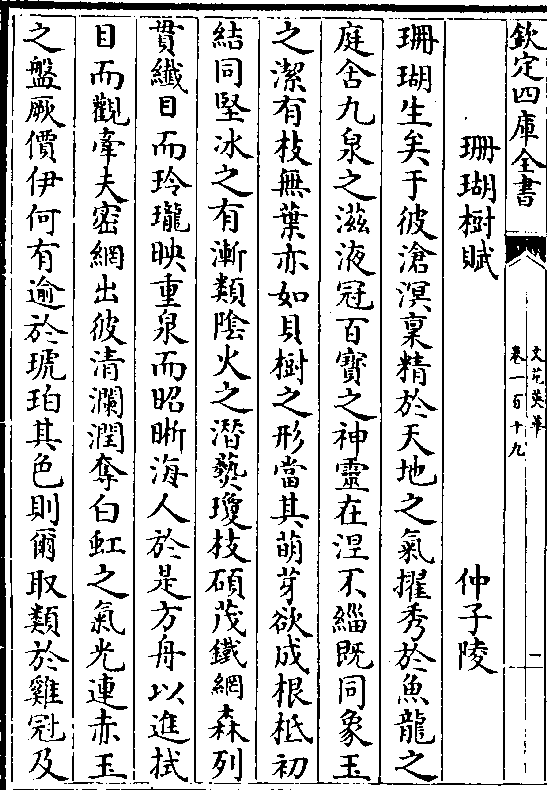 欽定四庫全書
文苑英華
卷一百十九
一
珊瑚樹賦 仲子陵
珊瑚生矣于彼滄溟稟精於天地之氣擢秀於魚龍之
庭含九泉之滋液冠百寶之神靈在涅不緇既同象玉
之潔有枝無葉亦如貝樹之形當其萌芽欲成根柢初
結同堅冰之有漸類陰火之潛爇瓊枝碩茂鐵網森列
貫纎目而玲瓏映重泉而昭晰海人於是方舟以進拭
目而觀牽夫密網出彼清瀾潤奪白虹之氣光連赤玉
之盤厥價伊何有逾於琥珀其色則爾取類於雞冠及